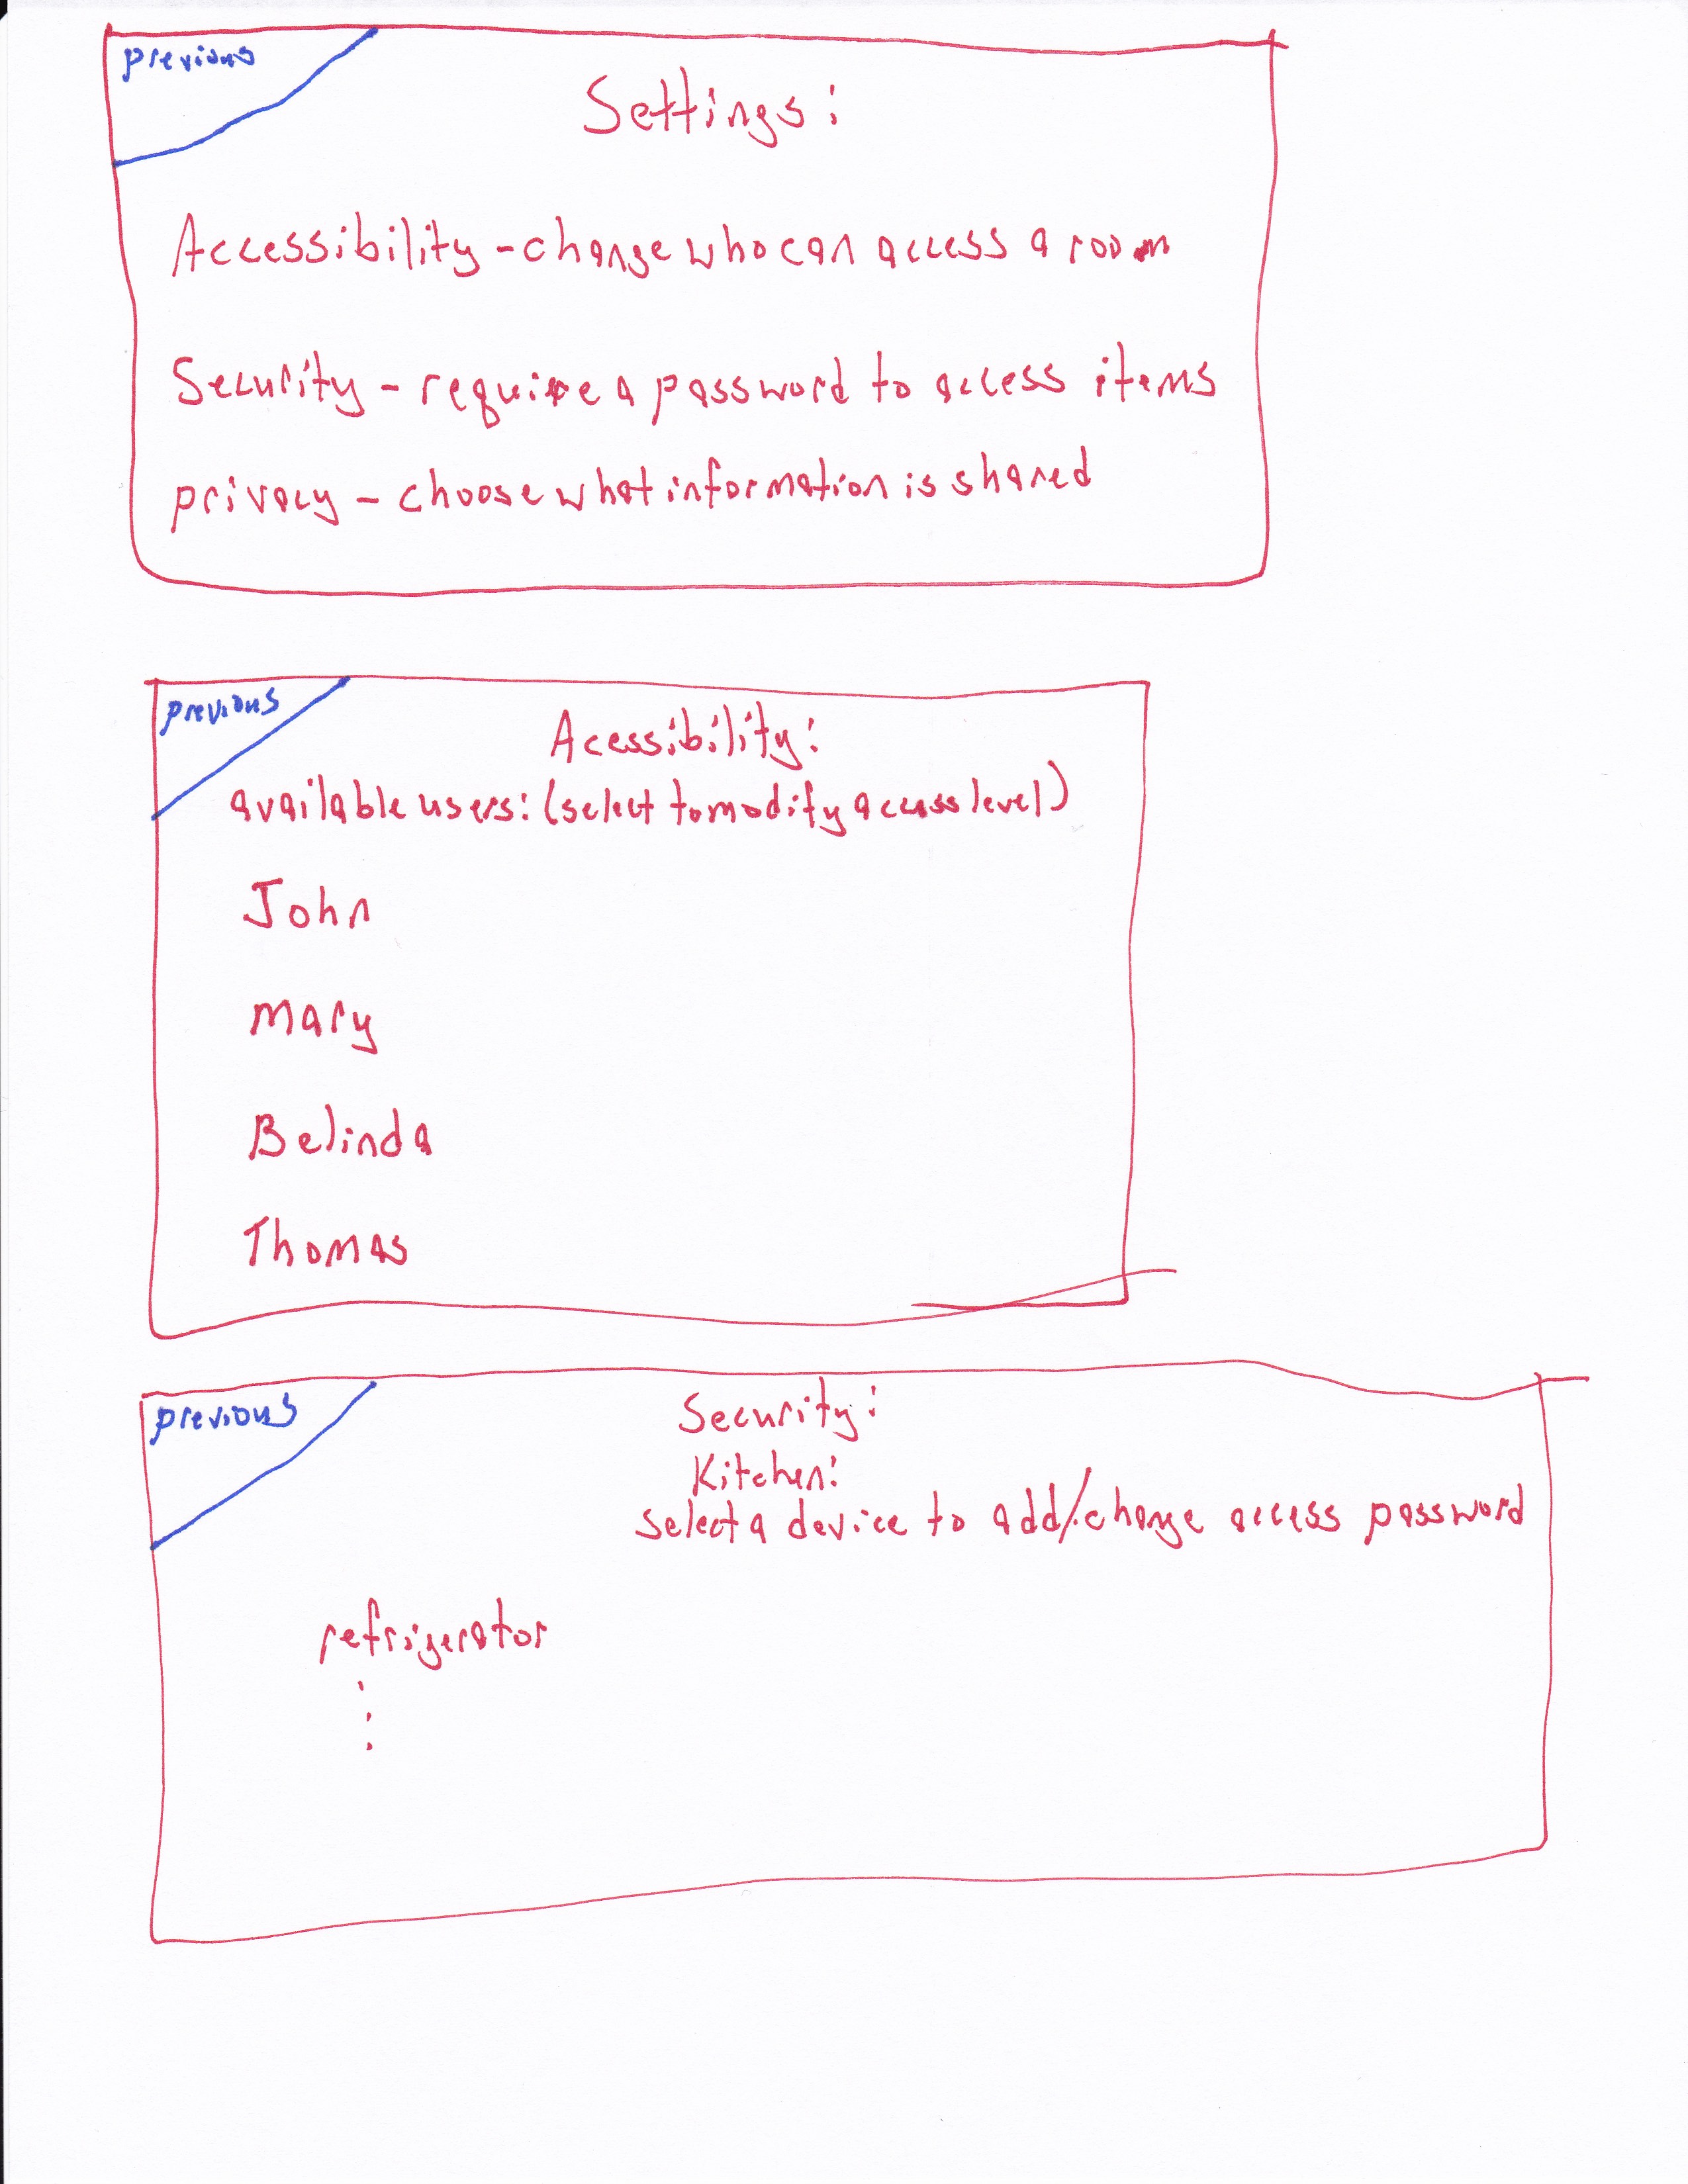 previous
Settings:
Accessibility - change who can access a room
Security - require a password to access items
privacy - choose what information is shared
previous
Acessibility:
available users: (select to modify access level)
John
Mary
Belinda
Thomas
previous
Security:
Kitchen:
select a device to add/change access password
refrigerator